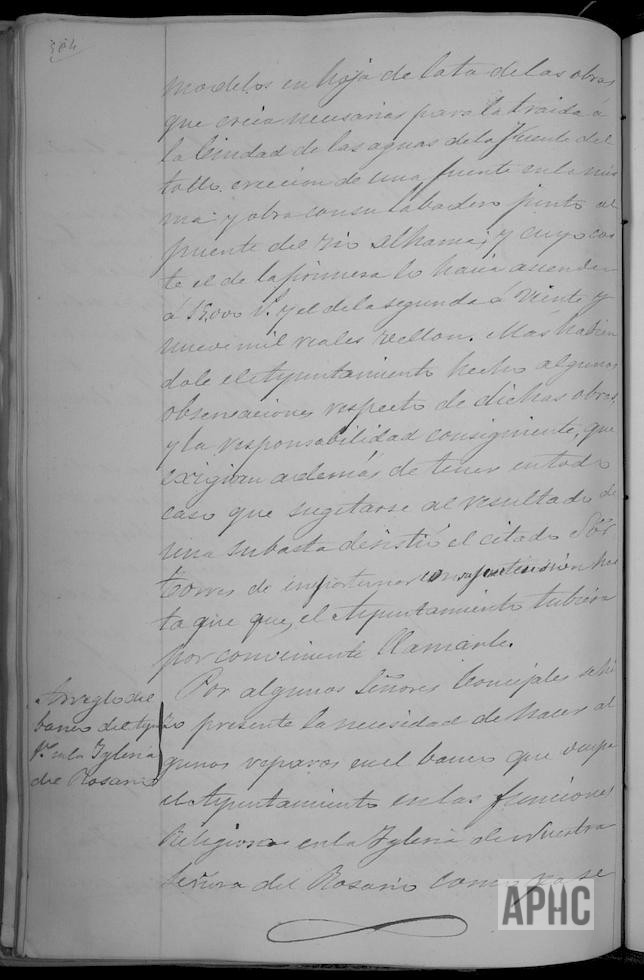 modelos en hoja de lata de las obras
que creia necesarias para la traida á
la Ciudad de las aguas de la Fuente del
tollo ereccion de una fuente en la mis
ma y otra con su labadero junto al
puente del rio Alhama; y cuyo cos
te el de la primera lo hacia ascender
á 15.000 r. y el de la segunda á Veinte y
nueve mil reales vellon. Mas habien
dole el Ayuntamiento hecho algunas
observaciones respecto de dichas obras,
y la responsabilidad consiguiente, que
exigian ademas de tener en todo
caso que sugetarse al resultado de
una subasta desistió el citado Sór
Torres de importunar con su pretension has
ta que que, el Ayuntamiento tubiera
por conveniente llamarle.
Arreglo del
banco del Ayun
tº en la Yglesia
del Rosario
Por algunos Señores Concejales se hi
zo presente la necesidad de hacer al
gunos reparos en el banco que ocupa
el Ayuntamiento en las funciones
Religiosas en la Yglesia de Nuestra
Señora del Rosario como ya se
APHC